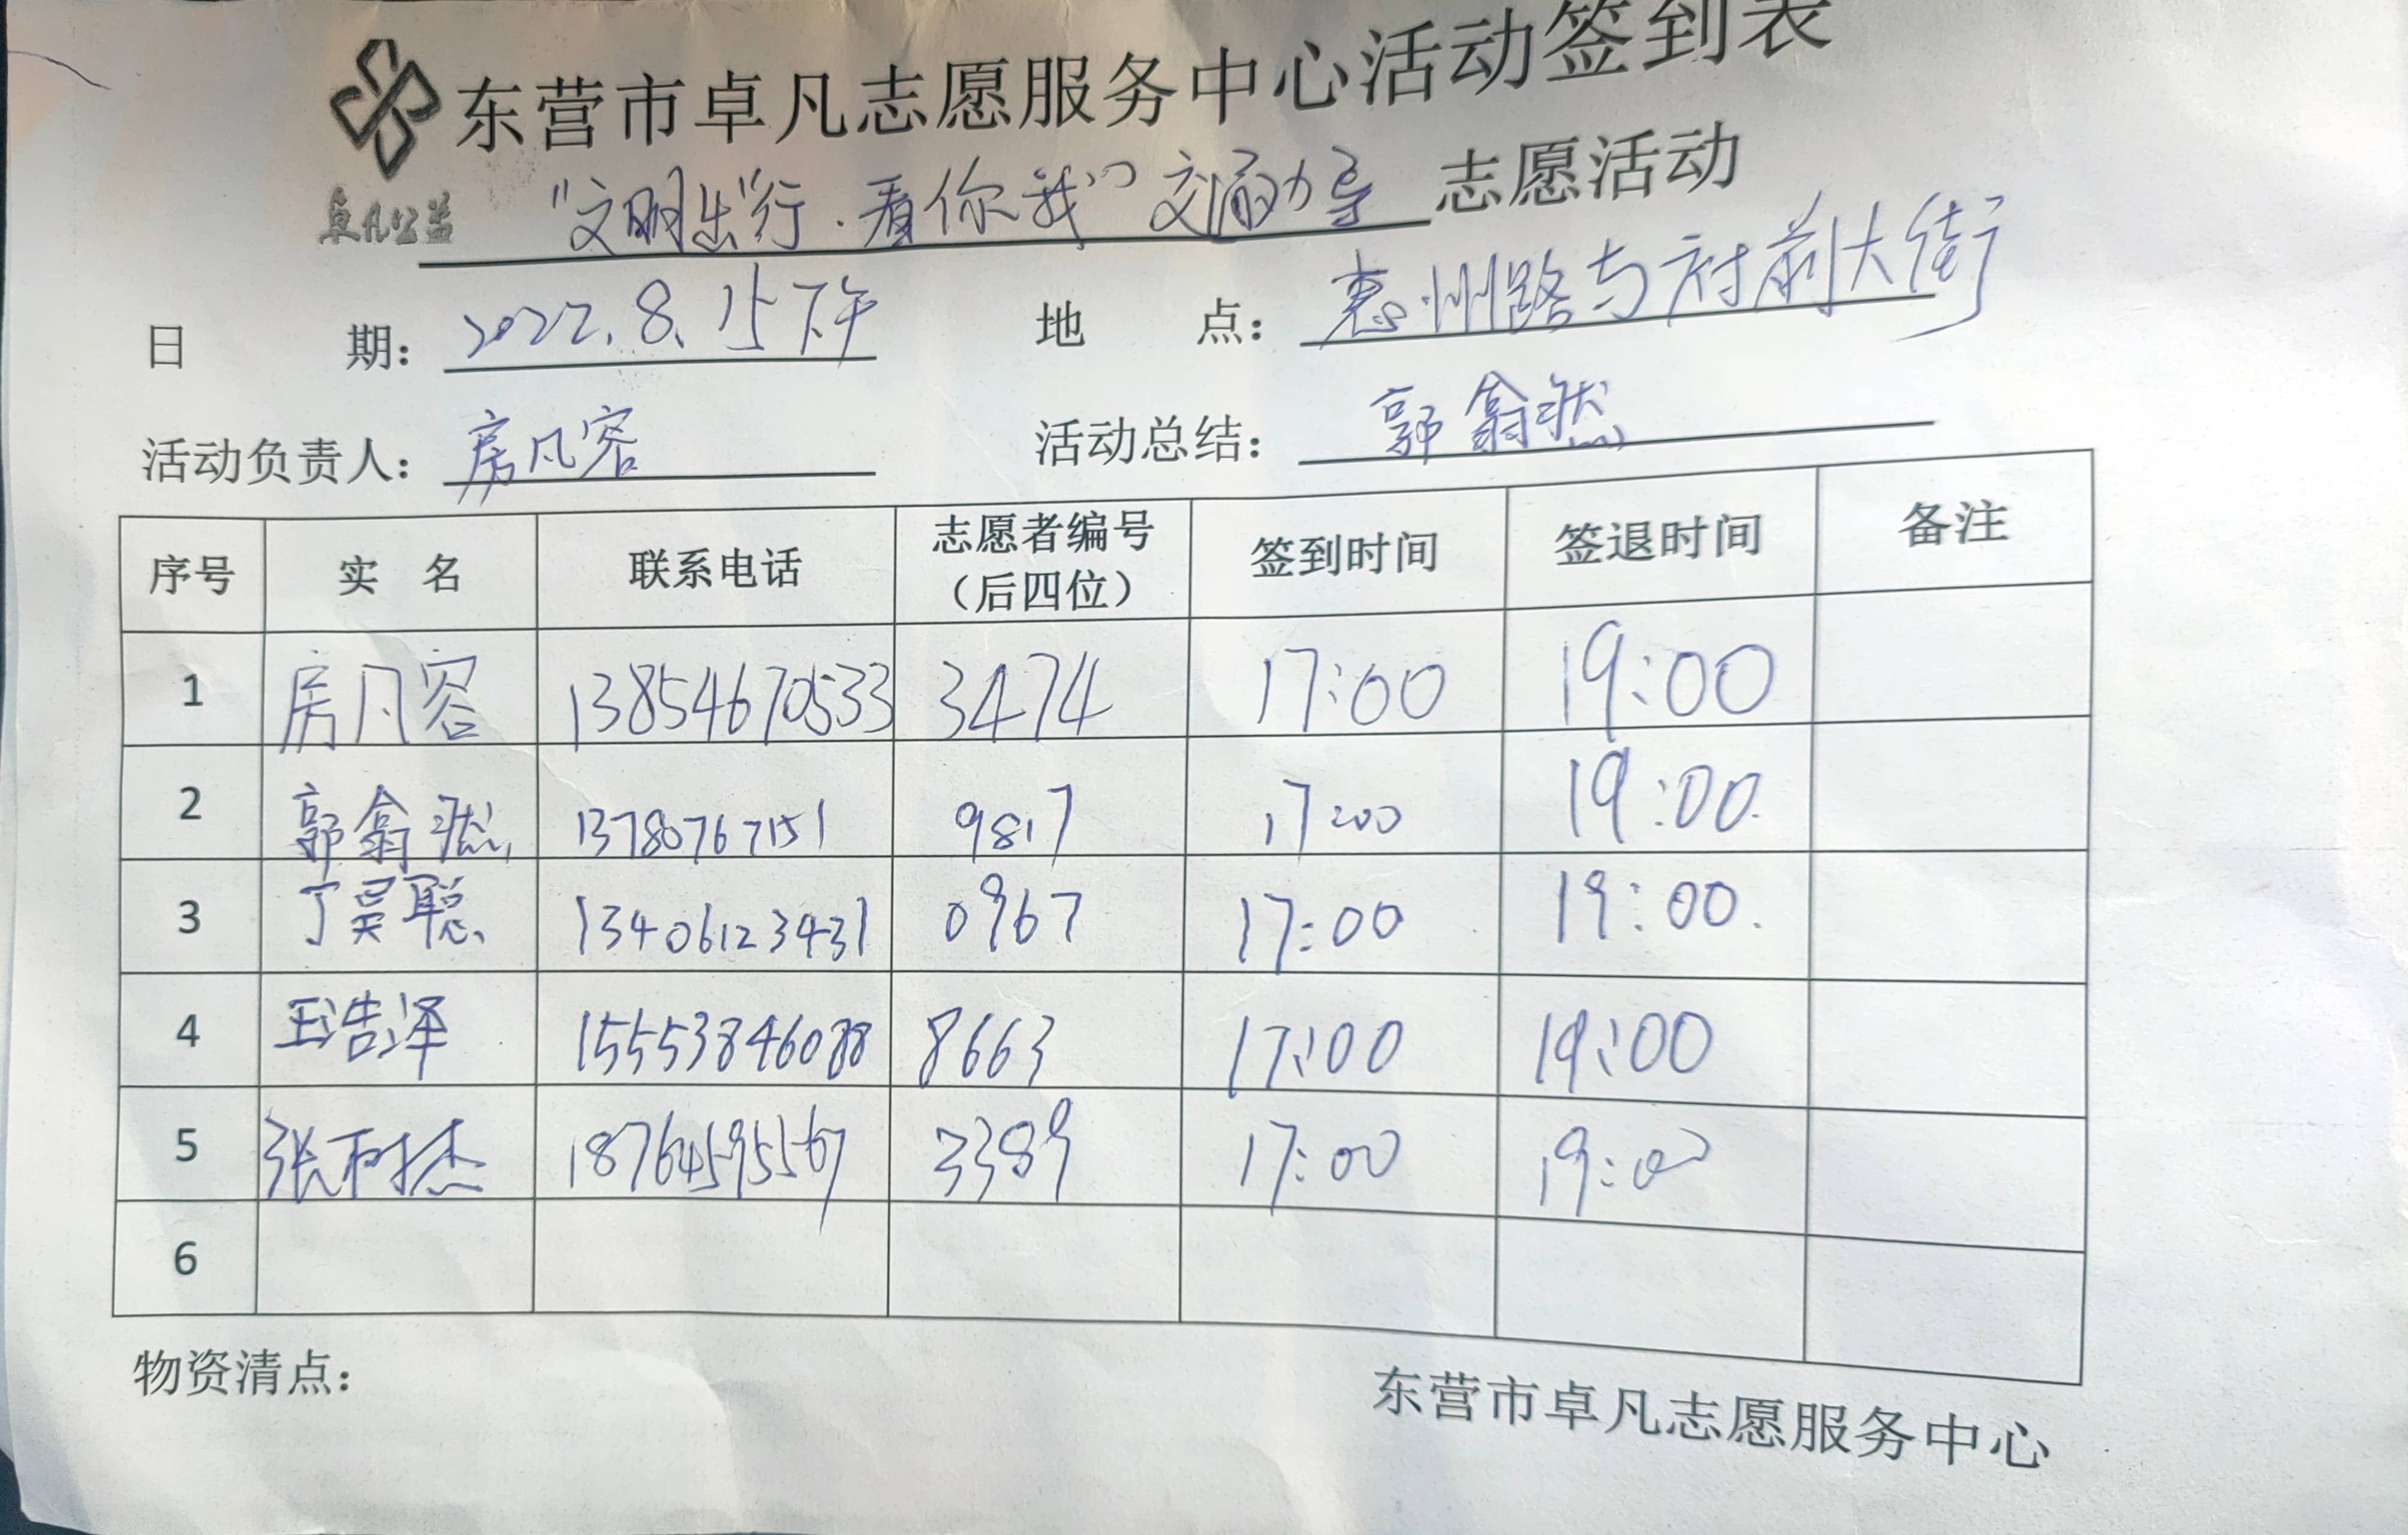 东营市卓凡志愿服务中心活动签到表
卓凡公益
"文明出行·看你我" 交通劝导 志愿活动
日 期: 2022.8.15下午 地 点: 惠州路与府前大街
活动负责人: 房凡容 活动总结: 郭翕然
序号 实 名 联系电话 志愿者编号（后四位） 签到时间 签退时间 备注
1 房凡容 13854670533 3474 17:00 19:00
2 郭翕然 13780767151 9817 17:00 19:00
3 丁昊聪 13406123431 0967 17:00 19:00
4 王浩泽 15553846088 8663 17:00 19:00
5 张树杰 18764595567 3389 17:00 19:00
6
物资清点:
东营市卓凡志愿服务中心